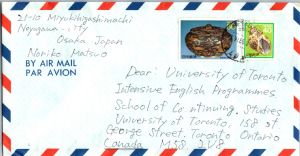 21-10 Miyukihigashimachi
Neyagawa-city
Osaka, Japan
Noriko Matsuo
BY AIR MAIL
PAR AVION
Dear: University of Toronto
Intensive English Programmes
School of Continuing Studies
University of Toronto, 158 st
George Street, Toronto Ontario
Canada M5S 2V8